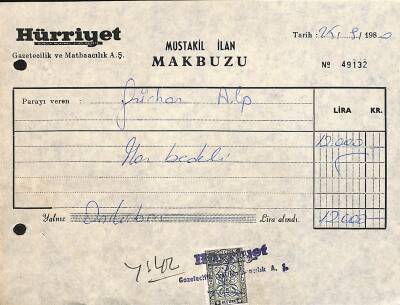 Hürriyet
Gazetecilik ve Matbaacılık A.Ş.
MUSTAKİL İLAN
MAKBUZU
Tarih : 25 / 9 / 1980
Nº 49132
Parayı veren : Gürhan Alp
LİRA KR.
İlan bedeli 12.000
Yalnız Onikibin Lira alındı. 12.000
Hürriyet
Gazetecilik ve Matbaacılık A. Ş.